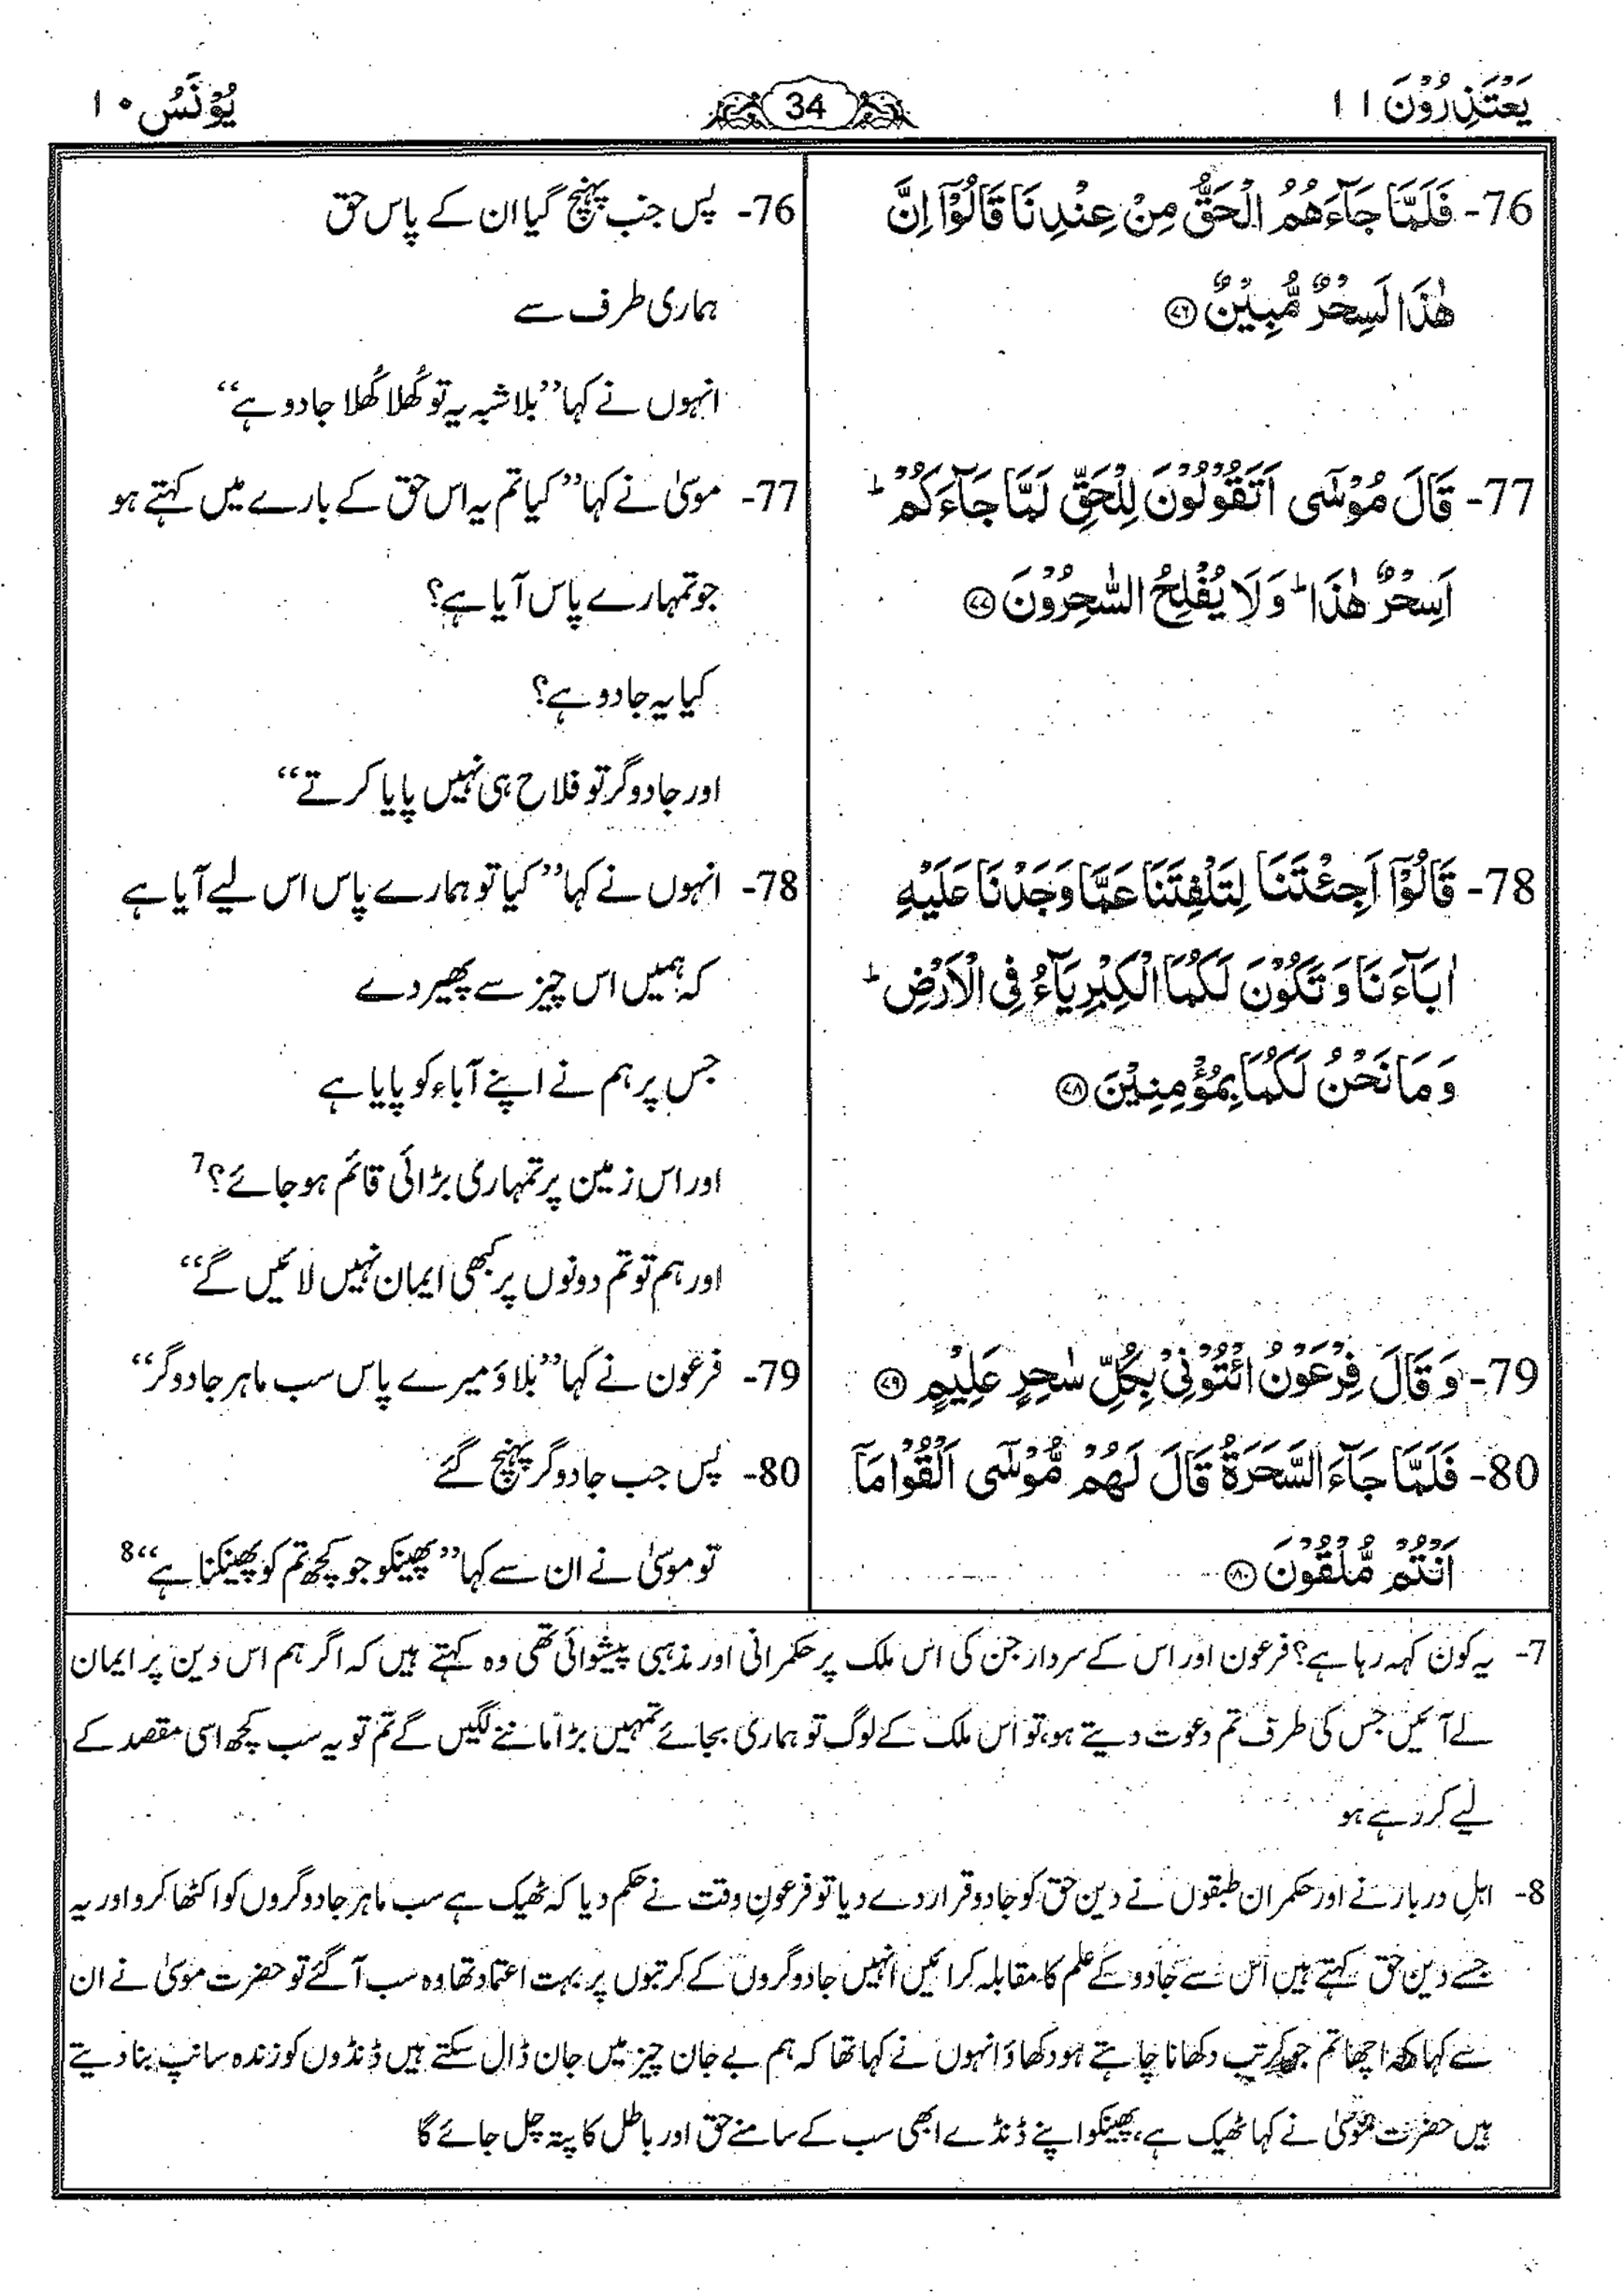 یَعْتَذِرُوْنَ ۱۱
34
یُوْنَسُ ۱۰
76- فَلَمَّا جَآءَهُمُ الْحَقُّ مِنْ عِنْدِنَا قَالُوْۤا اِنَّ
هٰذَا لَسِحْرٌ مُّبِیْنٌ ﴿۷۶﴾
77- قَالَ مُوْسٰۤی اَتَقُوْلُوْنَ لِلْحَقِّ لَمَّا جَآءَكُمْ ؕ
اَسِحْرٌ هٰذَا ؕ وَلَا یُفْلِحُ السّٰحِرُوْنَ ﴿۷۷﴾
78- قَالُوْۤا اَجِئْتَنَا لِتَلْفِتَنَا عَمَّا وَجَدْنَا عَلَیْهِ
اٰبَآءَنَا وَ تَكُوْنَ لَكُمَا الْكِبْرِیَآءُ فِی الْاَرْضِ ؕ
وَ مَا نَحْنُ لَكُمَا بِمُؤْمِنِیْنَ ﴿۷۸﴾
79- وَ قَالَ فِرْعَوْنُ ائْتُوْنِیْ بِكُلِّ سٰحِرٍ عَلِیْمٍ ﴿۷۹﴾
80- فَلَمَّا جَآءَ السَّحَرَةُ قَالَ لَهُمْ مُّوْسٰۤی اَلْقُوْا مَاۤ
اَنْتُمْ مُّلْقُوْنَ ﴿۸۰﴾
76- پس جب پہنچ گیا ان کے پاس حق
ہماری طرف سے
انہوں نے کہا ’’بلا شبہ یہ تو کُھلا کُھلا جادو ہے‘‘
77- موسیٰ نے کہا ’’کیا تم یہ اس حق کے بارے میں کہتے ہو
جو تمہارے پاس آیا ہے؟
کیا یہ جادو ہے؟
اور جادوگر تو فلاح ہی نہیں پایا کرتے‘‘
78- انہوں نے کہا ’’کیا تو ہمارے پاس اس لیے آیا ہے
کہ ہمیں اس چیز سے پھیر دے
جس پر ہم نے اپنے آباء کو پایا ہے
اور اس زمین پر تمہاری بڑائی قائم ہو جائے؟7
اور ہم تو تم دونوں پر کبھی ایمان نہیں لائیں گے‘‘
79- فرعون نے کہا ’’بلاؤ میرے پاس سب ماہر جادوگر‘‘
80- پس جب جادوگر پہنچ گئے
تو موسیٰ نے ان سے کہا ’’پھینکو جو کچھ تم کو پھینکنا ہے‘‘8
7- یہ کون کہہ رہا ہے؟ فرعون اور اس کے سردار جن کی اس ملک پر حکمرانی اور مذہبی پیشوائی تھی وہ کہتے ہیں کہ اگر ہم اس دین پر ایمان
لے آئیں جس کی طرف تم دعوت دیتے ہو، تو اس ملک کے لوگ تو ہماری بجائے تمہیں بڑا ماننے لگیں گے تم تو یہ سب کچھ اسی مقصد کے
لیے کر رہے ہو
8- اہلِ دربار نے اور حکمران طبقوں نے دین حق کو جادو قرار دے دیا تو فرعونِ وقت نے حکم دیا کہ ٹھیک ہے سب ماہر جادوگروں کو اکٹھا کرو اور یہ
جسے دین حق کہتے ہیں اس سے جادو کے علم کا مقابلہ کرائیں انہیں جادوگروں کے کرتبوں پر بہت اعتماد تھا وہ سب آ گئے تو حضرت موسیٰ نے ان
سے کہا کہ اچھا تم جو کرتب دکھانا چاہتے ہو دکھاؤ انہوں نے کہا تھا کہ ہم بے جان چیز میں جان ڈال سکتے ہیں ڈنڈوں کو زندہ سانپ بنا دیتے
ہیں حضرت موسیٰ نے کہا ٹھیک ہے، پھینکو اپنے ڈنڈے ابھی سب کے سامنے حق اور باطل کا پتہ چل جائے گا